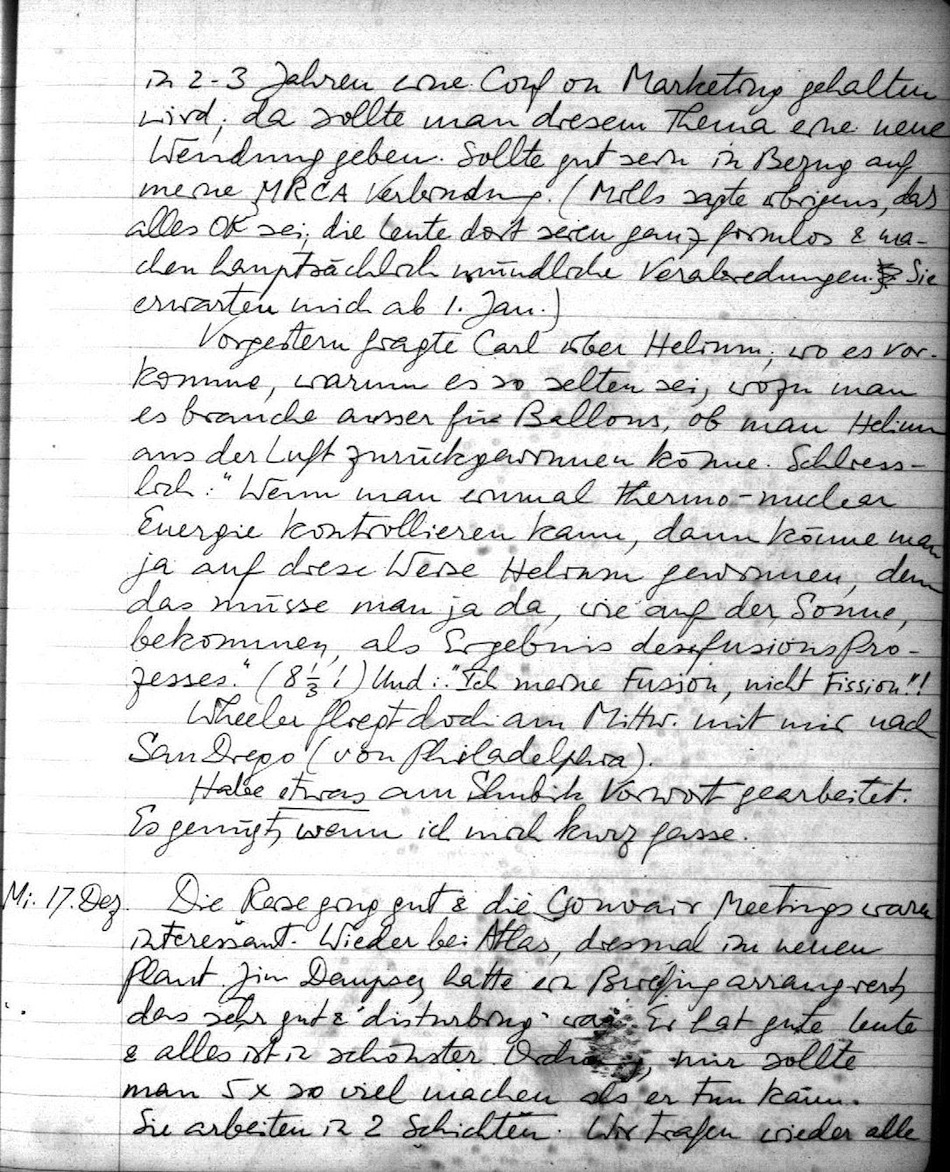 in 2-3 Jahren eine Conf on Marketing gehalten
wird; da sollte man diesem Thema eine neue
Wendung geben. Sollte gut sein in Bezug auf
meine MRCA Verbindung. (Mills sagte übrigens, daß
alles OK sei, die Leute dort seien ganz formlos & ma-
chen hauptsächlich mündliche Verabredungen. Sie
erwarten mich ab 1. Jan.)
Vorgestern fragte Carl über Helium; wo es vor-
komme, warum es so selten sei, wozu man
es brauche ausser für Ballons, ob man Helium
aus der Luft zurückgewinnen könne. Schliess-
lich: "Wenn man einmal thermo-nuclear
Energie kontrollieren kann, dann könne man
ja auf diese Weise Helium gewinnen, denn
das müsse man ja da, wie auf der Sonne,
bekommen, als Ergebnis des fusions Pro-
zesses." (8 1/3 !) Und: "Ich meine Fusion, nicht Fission"!
Wheeler fliegt doch am Mittw. mit mir nach
San Diego (von Philadelphia).
Habe etwas am Shubik Vorwort gearbeitet.
Es genügt, wenn ich mich kurz fasse.
Mi. 17. Dez. Die Reise ging gut & die Convair Meetings waren
interessant. Wieder bei Atlas, diesmal im neuen
Plant. Jim Dempsey hatte ein Briefing arrangiert,
das sehr gut & "disturbing" war. Er hat gute Leute
& alles ist in schönster Ordnung, nur sollte
man 5x so viel machen als er tun kann.
Sie arbeiten in 2 Schichten. Wir trafen wieder alle